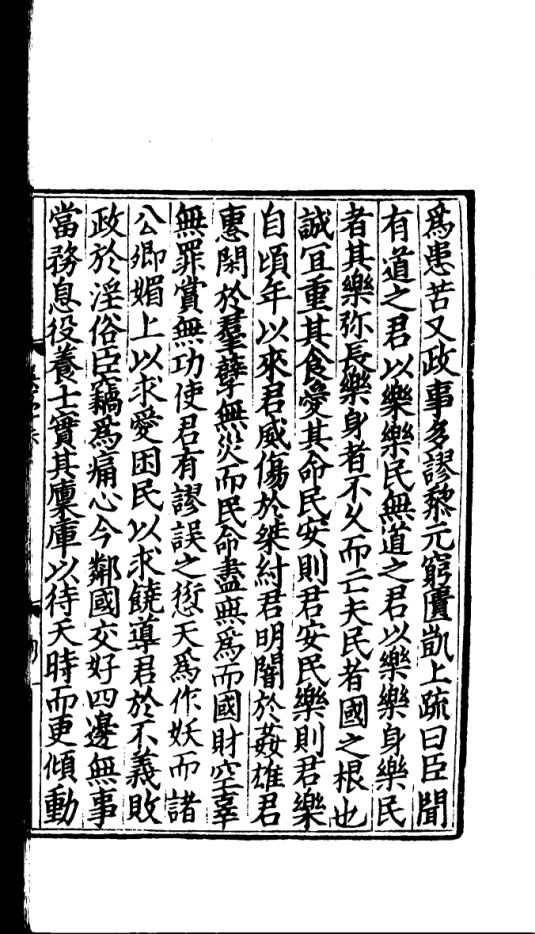 爲患苦又政事多謬黎元窮匱凱上疏曰臣聞
有道之君以樂樂民無道之君以樂樂身樂民
者其樂弥長樂身者不久而亡夫民者國之根也
誠冝重其食愛其命民安則君安民樂則君樂
自頃年以來君威傷於桀紂君明闇於姦雄君
惠閑於羣孽無災而民命盡無爲而國財空辜
無罪賞無功使君有謬誤之愆天爲作妖而諸
公卿媚上以求愛困民以求饒導君於不義敗
政於淫俗臣竊爲痛心今鄰國交好四邊無事
當務息役養士實其廩庫以待天時而更傾動